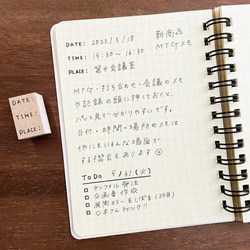 DATE: 2022/5/18
新商品
MTGメモ
TIME: 15:30 ~ 16:30
PLACE: 第4会議室
MTG・打ち合わせ・会議のメモ
や記録の頭に押しておくと、
パッと見て分かりやすいです。
日付・時間・場所のメモは
他にもいろんな場面で
する機会もあります
TO DO 5/31(火)
サンプル発注
企画書作成
展開カラーをしぼる(20日)
○本さんチェック!!
DATE:
TIME:
PLACE: